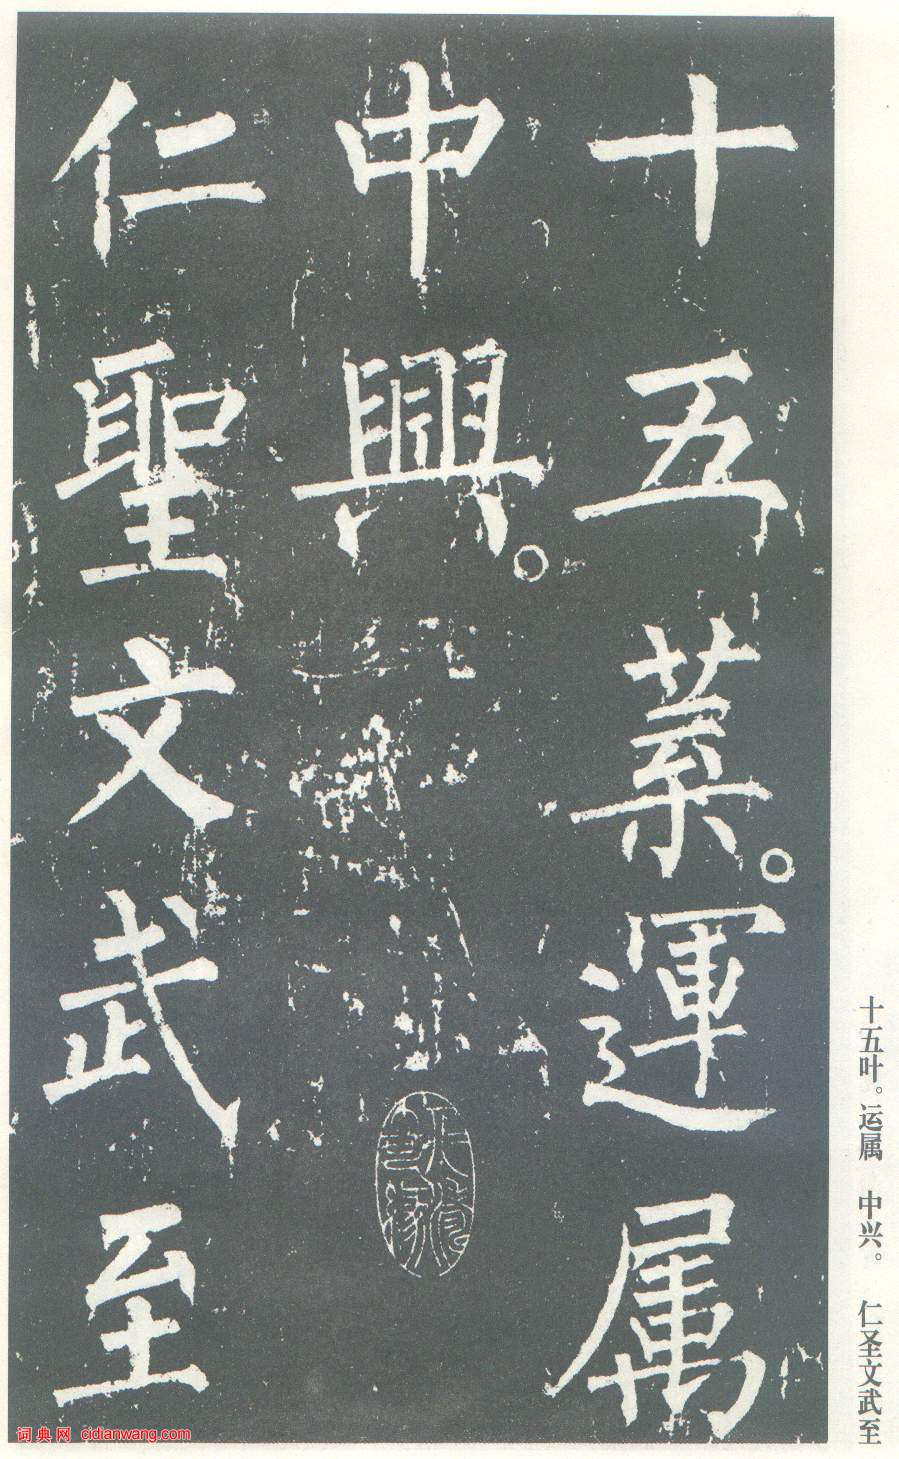 十五葉。運属
中興。
仁聖文武至
十五叶。运属　中兴。　仁圣文武至
词典网 cidianwang.com